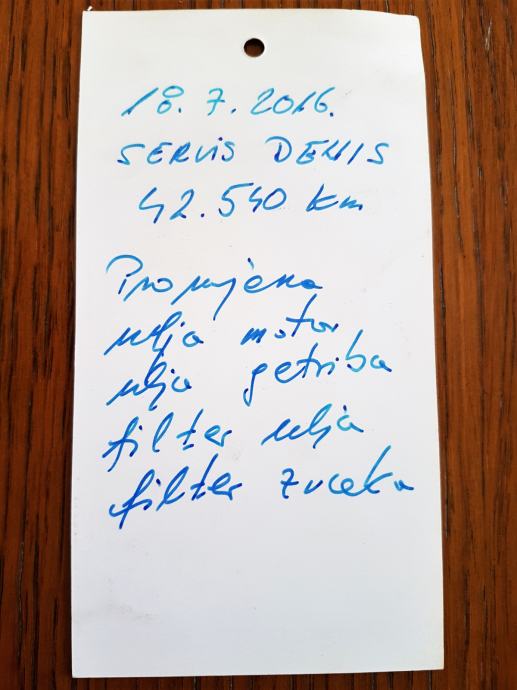 18.7.2016.
SERVIS DENIS
42.540 km
Promjena
ulja motor
ulja getriba
filter ulja
filter zraka